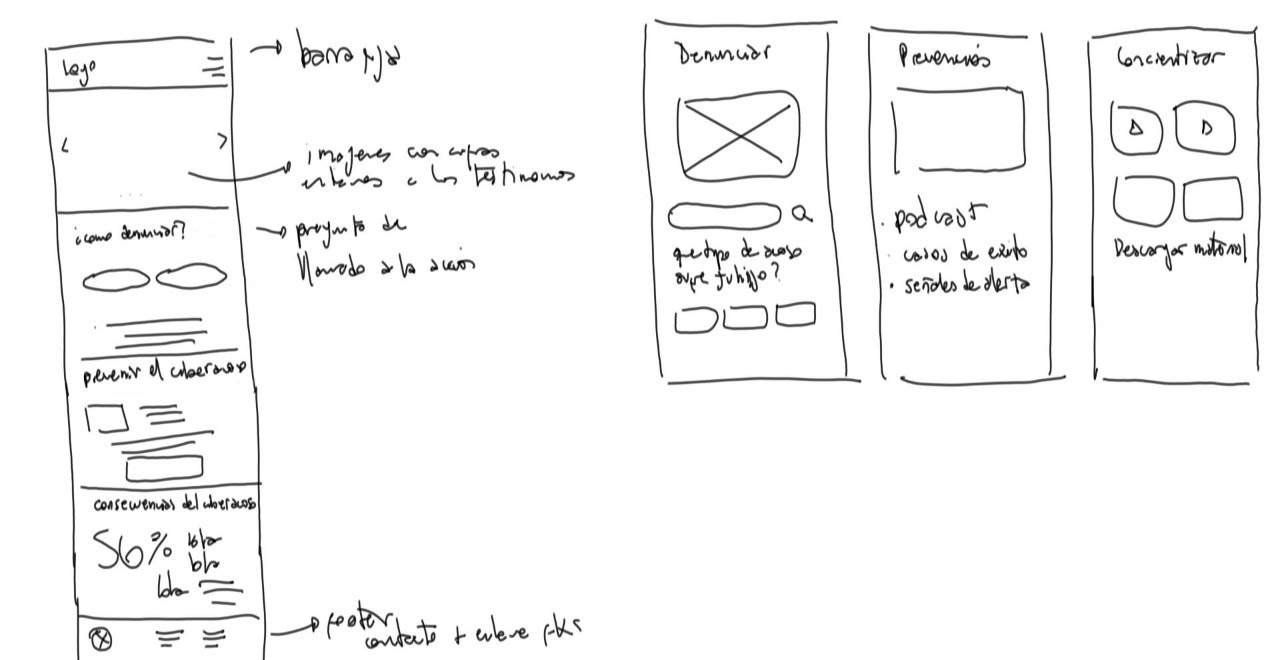 Logo
barra fija
imagenes con cifras
enlaces a los testimonios
¿como denunciar?
pregunta de
llamado a la acción
prevenir el ciberacoso
consecuencias del ciberacoso
56% bla
bla
bla
footer
contacto + enlace
Denunciar
que tipo de acoso
sufre tu hijo?
Prevención
• podcast
• casos de exito
• señales de alerta
Concientizar
Descargar material